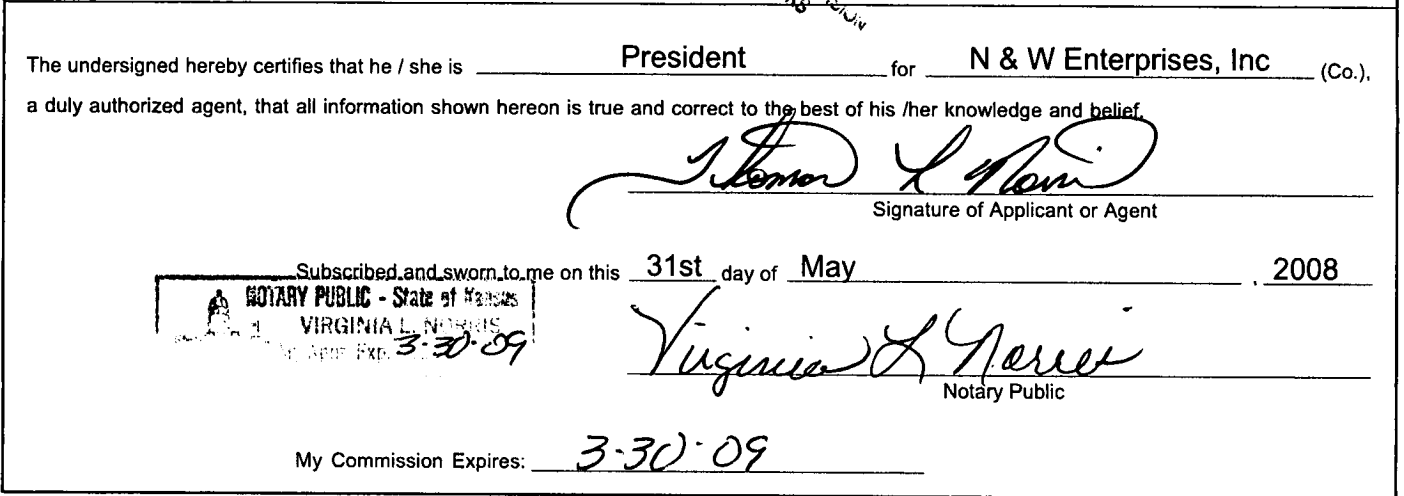 The undersigned hereby certifies that he / she is President for N & W Enterprises, Inc (Co.),
a duly authorized agent, that all information shown hereon is true and correct to the best of his /her knowledge and belief.
Thomas L Norris
Signature of Applicant or Agent
Subscribed and sworn to me on this 31st day of May , 2008
NOTARY PUBLIC - State of Kansas
VIRGINIA L. NORRIS
My Appt. Exp. 3-30-09
Virginia L Norris
Notary Public
My Commission Expires: 3-30-09